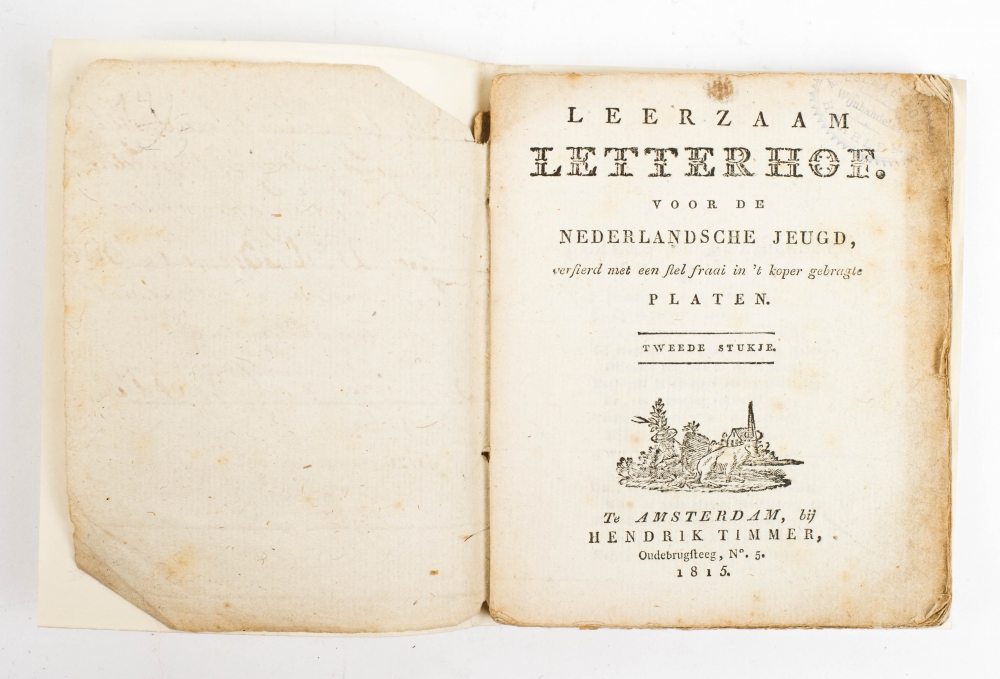 LEERZAAM
LETTERHOF.
VOOR DE
NEDERLANDSCHE JEUGD,
verſierd met een ſtel fraai in 't koper gebragte
PLATEN.
TWEEDE STUKJE.
Te AMSTERDAM, bij
HENDRIK TIMMER,
Oudebrugſteeg, Nº. 5.
1815.